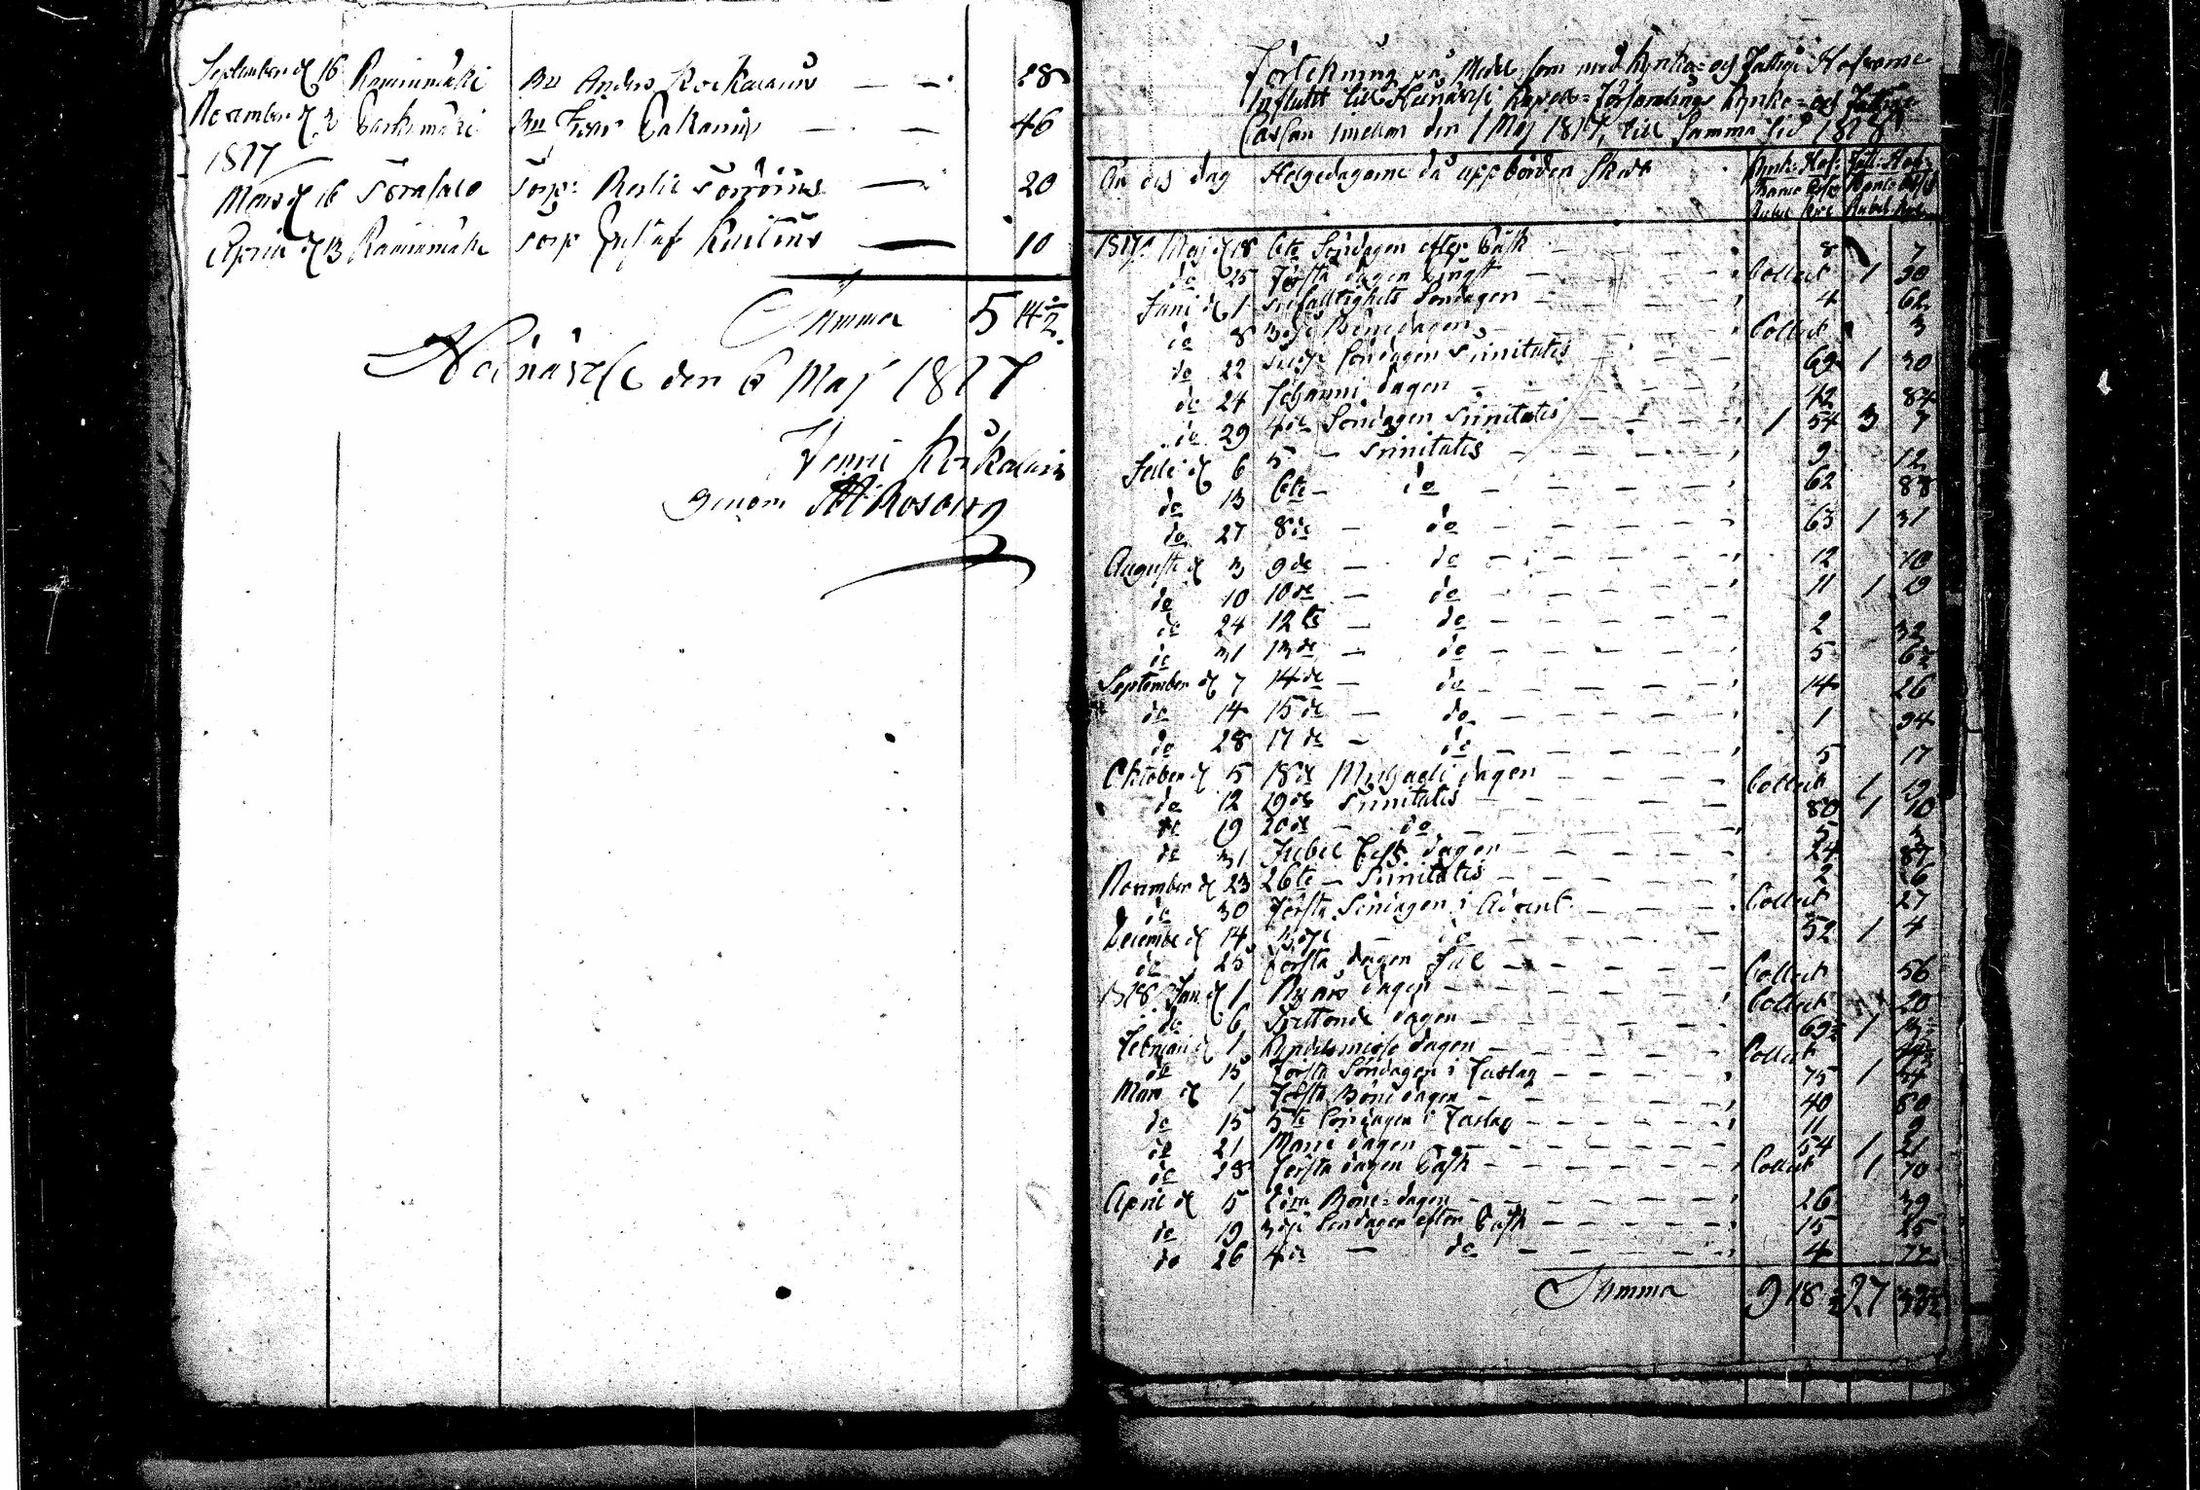 September d 16 Rauiamäki Bn Anders Kockarainen — — 28
November d 3 Parkimäki Bn Ivar Pakarin — — 46
1817
Mars d 16 Torasalo Torp: — 20
April d 13 Rauiamäki Torp Gustaf — 10
Summa 5 14 1/2.
Heinävesi den 6 Maj 1817
Henric
genom
Förtekning på Medel, som med Kyrko- og Fattig Håfvarne
Influtit till Heinävesi Capell-Församlings Kyrko- og Fattig
Cassan imellan den 1 Maj 1817, till samma tid 1818
År og dag Helgedagarne då uppbörden skedt Kyrk: Håf: Fatt: Håf:
Banco Rubel Kop Banco Rubel Kop
1817 Maj d 18 6te Söndagen efter Påsk — 8 7
do 25 Första dagen Pingst — Collect 1 30
Juni d 1 Trefallighets Söndagen — 4 62
do 8 3dje Bönedagen — Collect 3
do 22 3dje Söndagen Trinitatis — 69 1 30
do 24 Johanni dagen — 12 84
do 29 4de Söndagen Trinitatis — 1 54 3 7
Julii d 6 5 — Trinitatis — 9 12
do 13 6te — do — 62 88
do 27 8de — do — 63 1 31
Augusti d 3 9de — do — 12 10
do 10 10de — do — 11 1 19
do 24 12te — do — 2 32
do 31 13de — do — 5 62
September d 7 14de — do — 14 26
do 14 15de — do — 1 94
do 28 17de — do — 5 17
Oktober d 5 18de Michaeli dagen — Collect 1 19
do 12 19de Trinitatis — 80 1 10
do 19 20de — do — 5 3
do 31 Jubel Fest dagen — 24 87
November d 23 26te — Trinitatis — 2 26
do 30 Första Söndagen i Advent — Collect 27
December d 14 3dje — do — 52 1 4
do 25 Första dagen Jul — Collect 56
1818 Jan d 1 Nyårs dagen — Collect 20
do 6 Trettonde dagen — 69 1/2 1
Februari d 1 Kyndelsmässo dagen — Collect
do 15 Första Söndagen i Fastlag — 75 1 54
Mars d 1 Första Bönedagen — 40 80
do 15 5te Söndagen i Fastlag — 11 9
do 21 Mariæ dagen — 54 1 21
do 28 Första dagen Påsk — Collect 1 70
April d 5 2dra Böne-dagen — 26 39
do 19 3dje Söndagen efter Påsk — 15 25
do 26 4de — do — 4 77
Summa 9 18 1/2 27